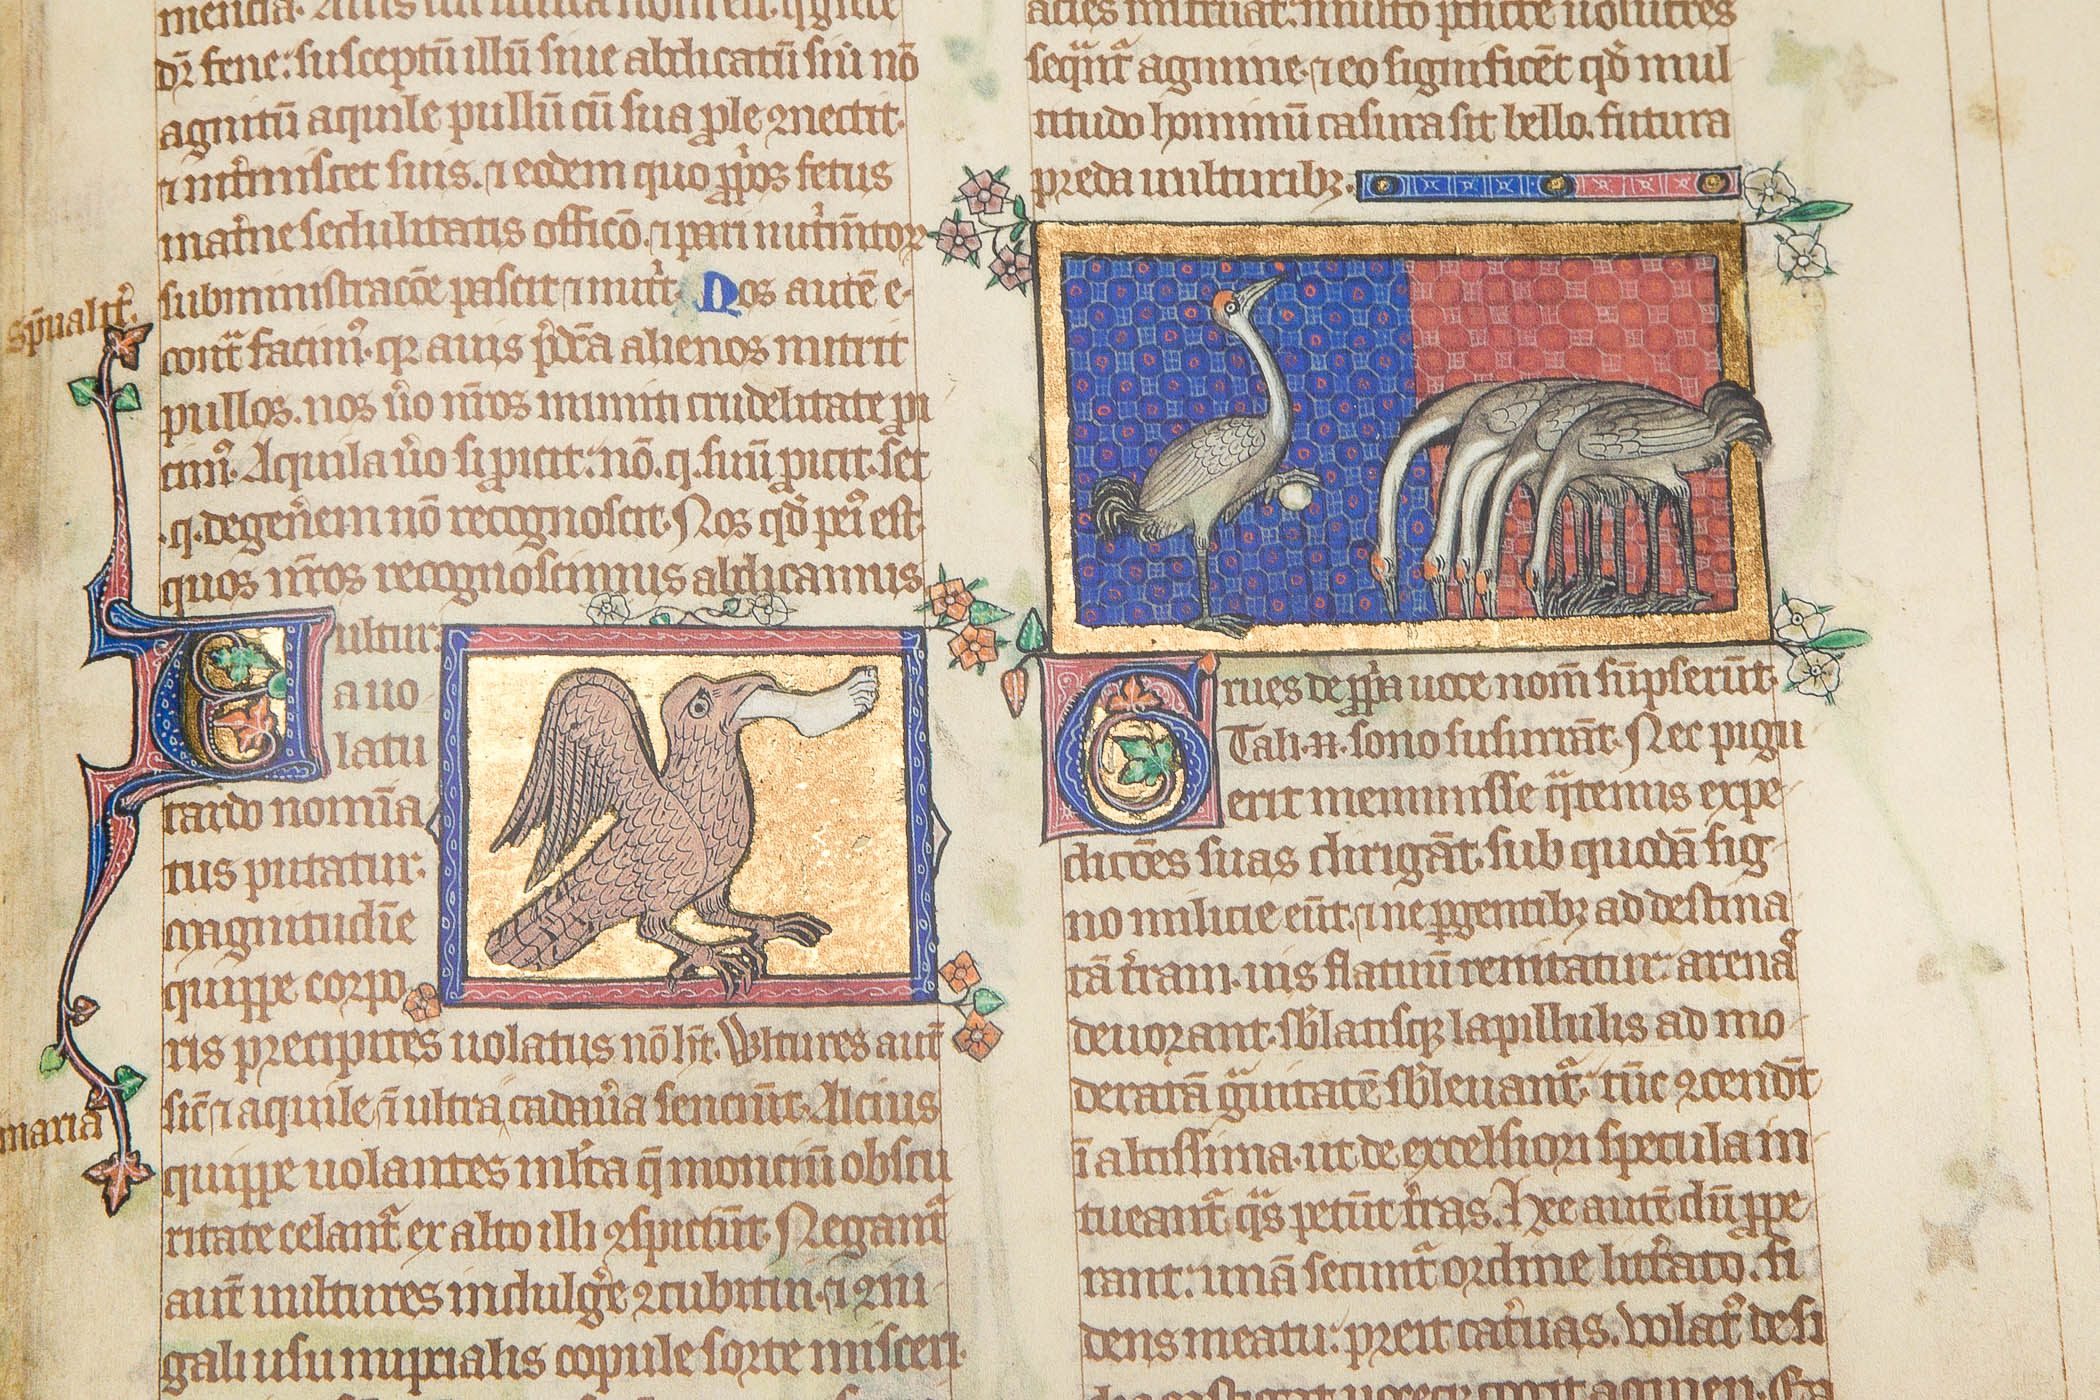 dr̄ fene: susceptū illū siue abdicatū siū nō
agnitū aquile pullū cū sua ꝓle ꝯnectit.
⁊ int̄miscet suis. ⁊ eodem quo ꝓp̄os fetus
mat̄ne sedulitatis officō. ⁊ pari nut̄m̄tor
subministracōe pascit ⁊ nut̄t. Nos autē e-
cont̄ facim᷒. qr auis p̄dc̄a alienos nutrit
pullos. nos ū̊o nr̄os inimiti crudelitate ꝓi
cim᷒. Aquila ū̊o si ꝓicit: nō. q. suū ꝓicit. set
.q. degen̄em nō recognoscit. Nos qd̄ pei᷒ est.
quos nr̄os recognoscimus abdicamus
sp̄ualit̄.
Vultur:
a uo-
latu
tardo nomīa
tus putatur:
magnitudīe
quippe corpo
ris precipites uolatus nō h̄t. Vltures aut̄
sic̄ ⁊ aquile ī ultra cadau̇a senciūt. Alcius
maria
quippe uolantes ml̄ta q̄ monciū obscu
ritate celant̄ ex alto illi ꝯspiciūt. Negant̄
aut̄ uultures indulḡe ꝯcubitui. ⁊ ꝯiu-
gali usu nupcialis copule sorte misceri.
acies mittuat: multo plures uolucres
seqūt̄ agmine. ⁊ eo significēt qd̄ mul
titudo hominū casura sit bello. futura
preda uulturibꝫ.
Grues de ꝓp̄a uoce nom̄ sūpserūt.
Tali. n̄. sono susurrāt. Nec pigu
erit meminisse q̄tenus expe-
dicōes suas dirigāt. sub quodā sig-
no milicie eūt. ⁊ ne ꝑgentibꝫ ad destina
tā t̄ram. uis flatuū renitatur: arenā
deuorant. sb̄latisqꝫ lapillulis ad mo-
deratā ḡuitatē sb̄leuant̄. tūc ꝯcendt̄
ī altissima. ut de excelsiori specula in-
tueant̄ q̄s petūt t̄ras. Hee autē dū ꝓpe-
rant: unā secunt̄ ordine litt̄ato. fi
dens meatu: preit cat̄uas. Volat̄ desi